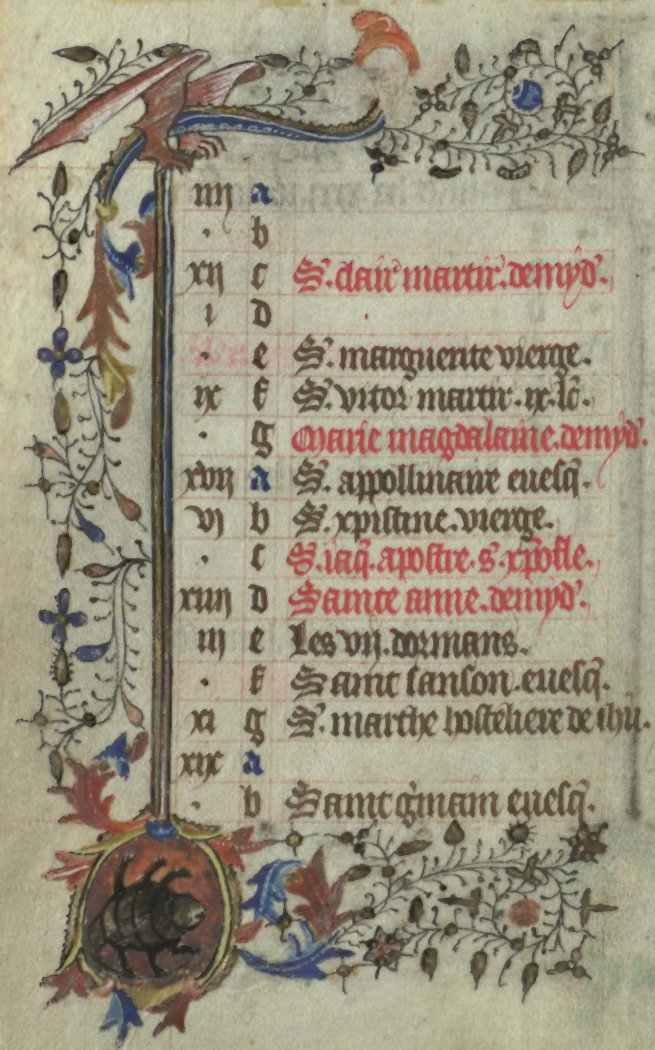 iiij a
. b
xij c S. clair martir. demyd'.
i D
. e S. marguerite vierge.
ix f S. vitor martir. ix. lc̄.
. g Marie magdalaine. demyd'.
xvij a S. appollinaire euesq̄.
vj b S. xpistine. vierge.
. c S. iaq̄. apostre. s. xp̄ofle.
xiiij D Sainte anne. demyd'.
iij e Les vij. dormans.
. f Saint sanson. euesq̄.
xi g S. marthe hosteliere de ihū.
xix a
. b Saint ḡmain euesq̄.